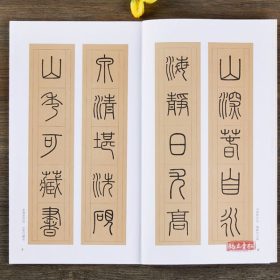 山深萅自永
海靜日尤高
泉清堪洗硯
山秀可藏書